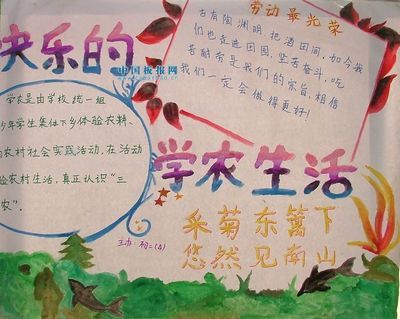 快乐的
学农生活
劳动最光荣
古有陶渊明把酒田间,如今我
们也走进田园,坚苦奋斗,吃
苦耐劳是我们的宗旨,相信
我们一定会做得更好!
中国板报网
学农是由学校统一组
少年学生集体下乡体验农耕、
农村社会实践活动,在活动
验农村生活,真正认识“三
农”.
主办:初二(8)
采菊东篱下
悠然见南山